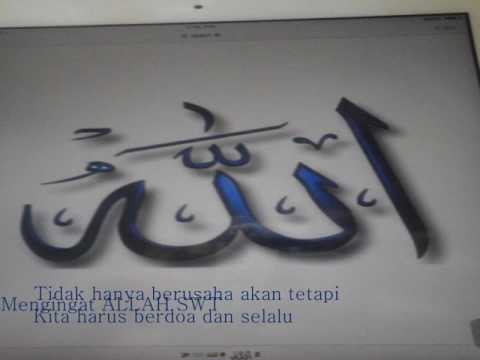 الله
Tidak hanya berusaha akan tetapi
Mengingat ALLAH SWT
Kita harus berdoa dan selalu